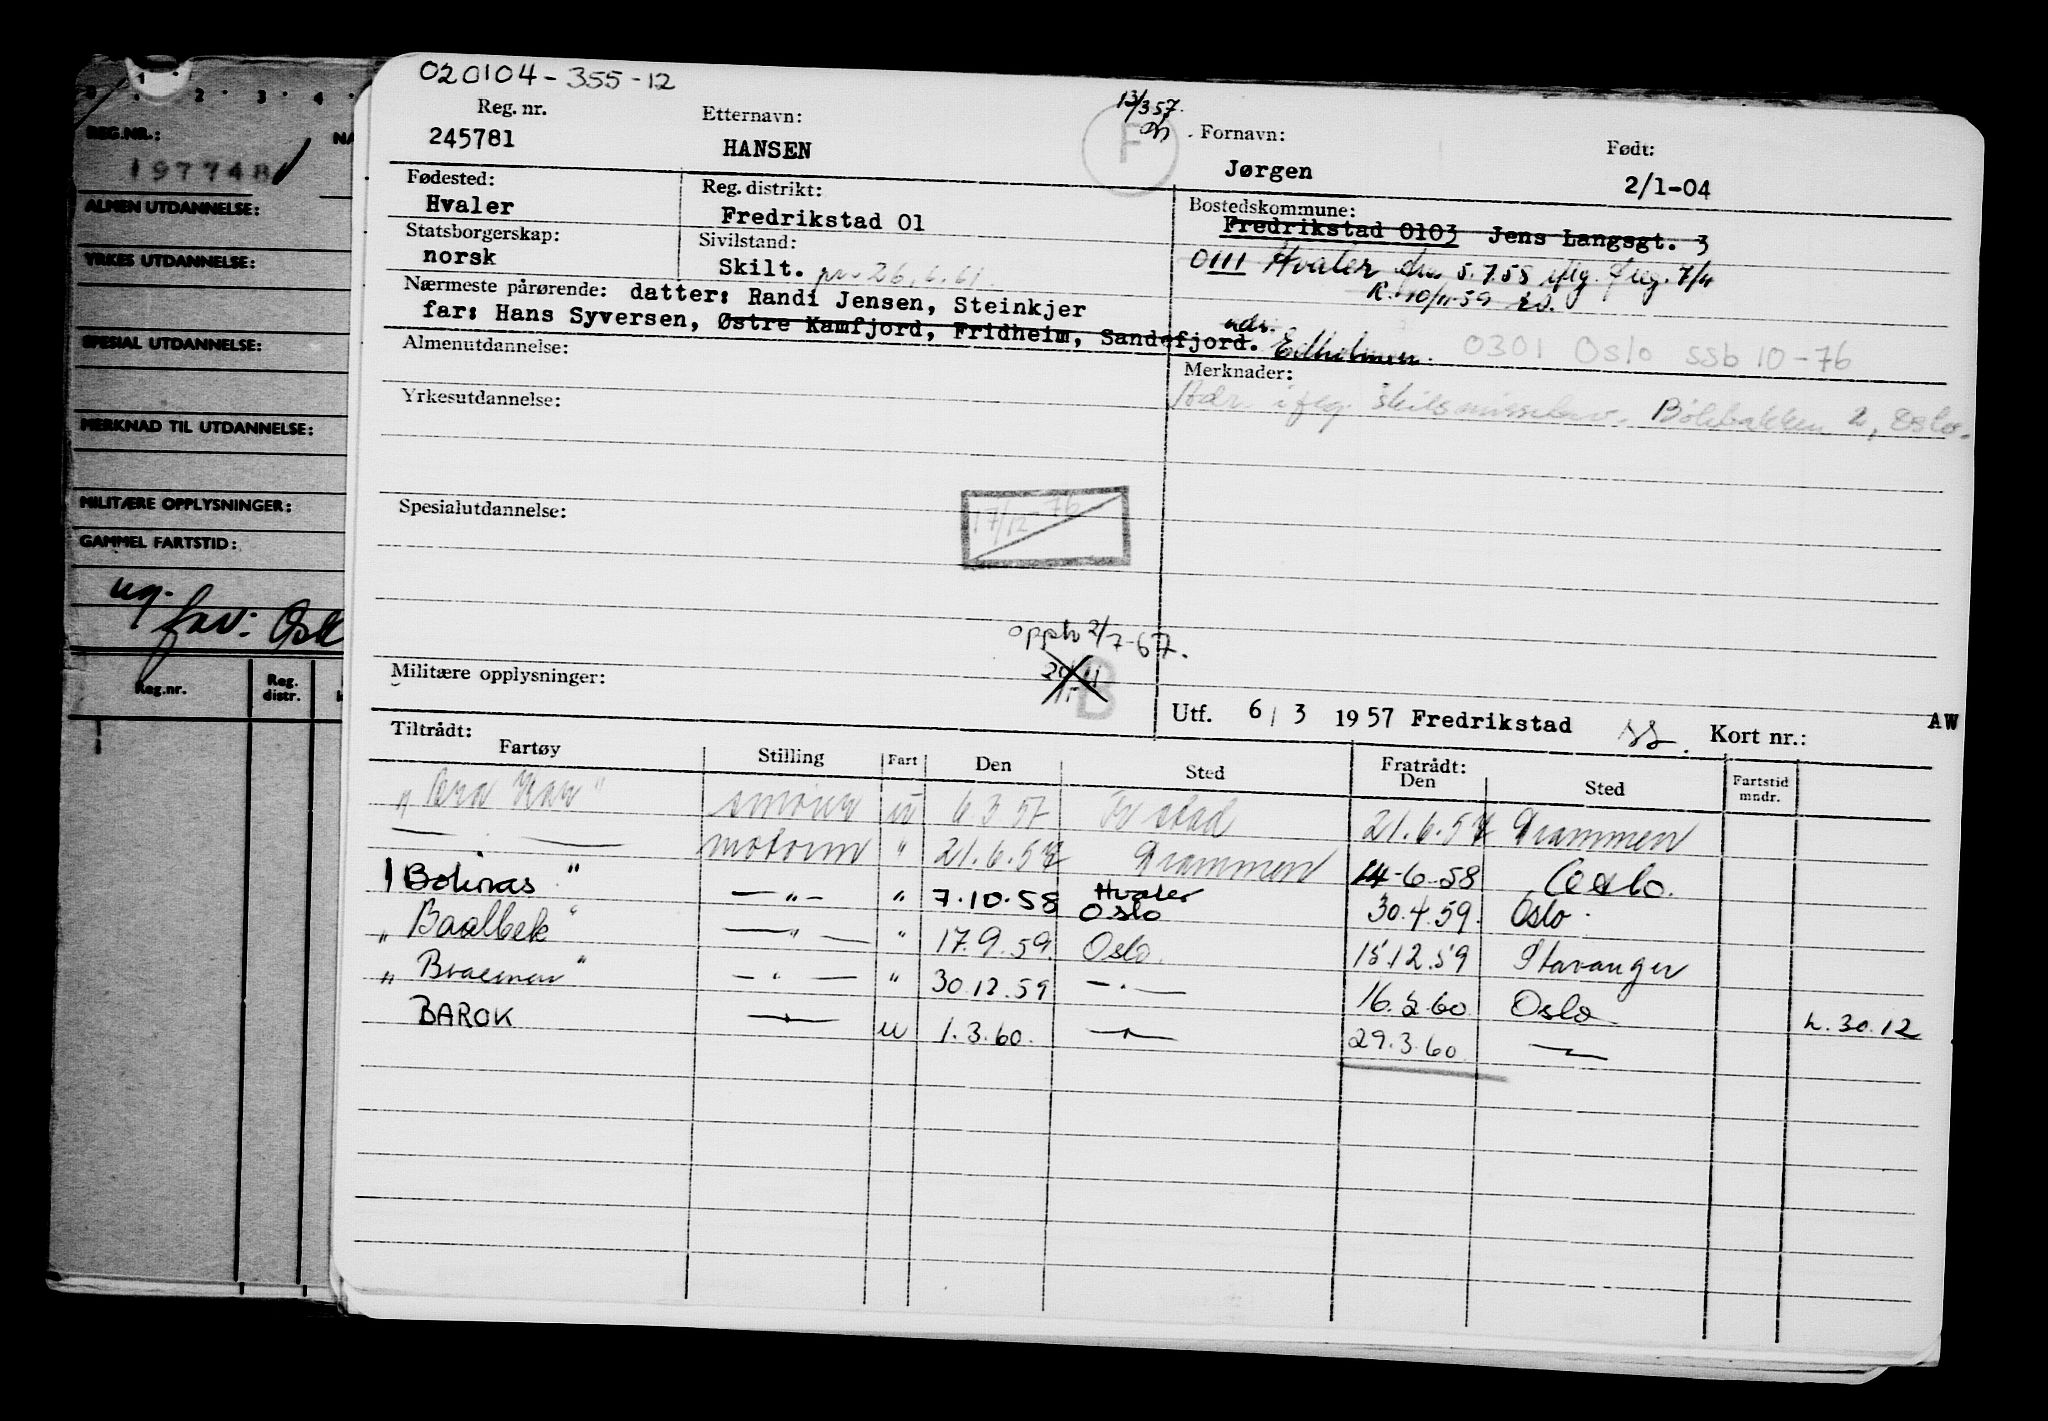 020104-355-12
Reg. nr.
245781
Etternavn:
HANSEN
13/3 57.
F
Fornavn:
Jørgen
Født:
2/1-04
Fødested:
Hvaler
Reg. distrikt:
Fredrikstad 01
Bostedskommune:
Fredrikstad 0103 Jens Langsgt. 3
Statsborgerskap:
norsk
Sivilstand:
Skilt. pr. 26.6.61.
0111 Hvaler 5.7.55 iflg. 7/4
R. 10/11-59
Nærmeste pårørende: datter: Randi Jensen, Steinkjer
far: Hans Syversen, Østre Kamfjord, Fridheim, Sandefjord.
adr.
0301 Oslo ssb 10-76
Almenutdannelse:
Merknader:
Adr. iflg. Bølerbakken 2, Oslo.
Yrkesutdannelse:
Spesialutdannelse:
17/12-76
2/7-67.
Militære opplysninger:
B
Utf. 6 / 3 1957 Fredrikstad
Kort nr.:
AW
Tiltrådt:
Fartøy
Stilling
Fart
Den
Sted
Fratrådt:
Den
Sted
Fartstid
mndr.
" Bra-Kar " smører u 6.3.57 Fr.stad 21.6.57 Drammen
— . — motorm " 21.6.57 Drammen 14-6-58 Oslo.
Bolinas " — " — " 7.10.58 Hvaler Oslo 30.4.59. Oslo.
" Baalbek " — " — " 17.9.59. Oslo. 15.12.59 Stavanger
" Braemar " — " — " 30.12.59 — . — 16.2.60 Oslo h. 30.12
BAROK — " — u 1.3.60. — " — 29.3.60 — " —
REG.NR.:
197748
ALMEN UTDANNELSE:
YRKES UTDANNELSE:
SPESIAL UTDANNELSE:
MERKNAD TIL UTDANNELSE:
MILITÆRE OPPLYSNINGER:
GAMMEL FARTSTID:
ug.
fav:
Reg.nr.
Reg.
distr.